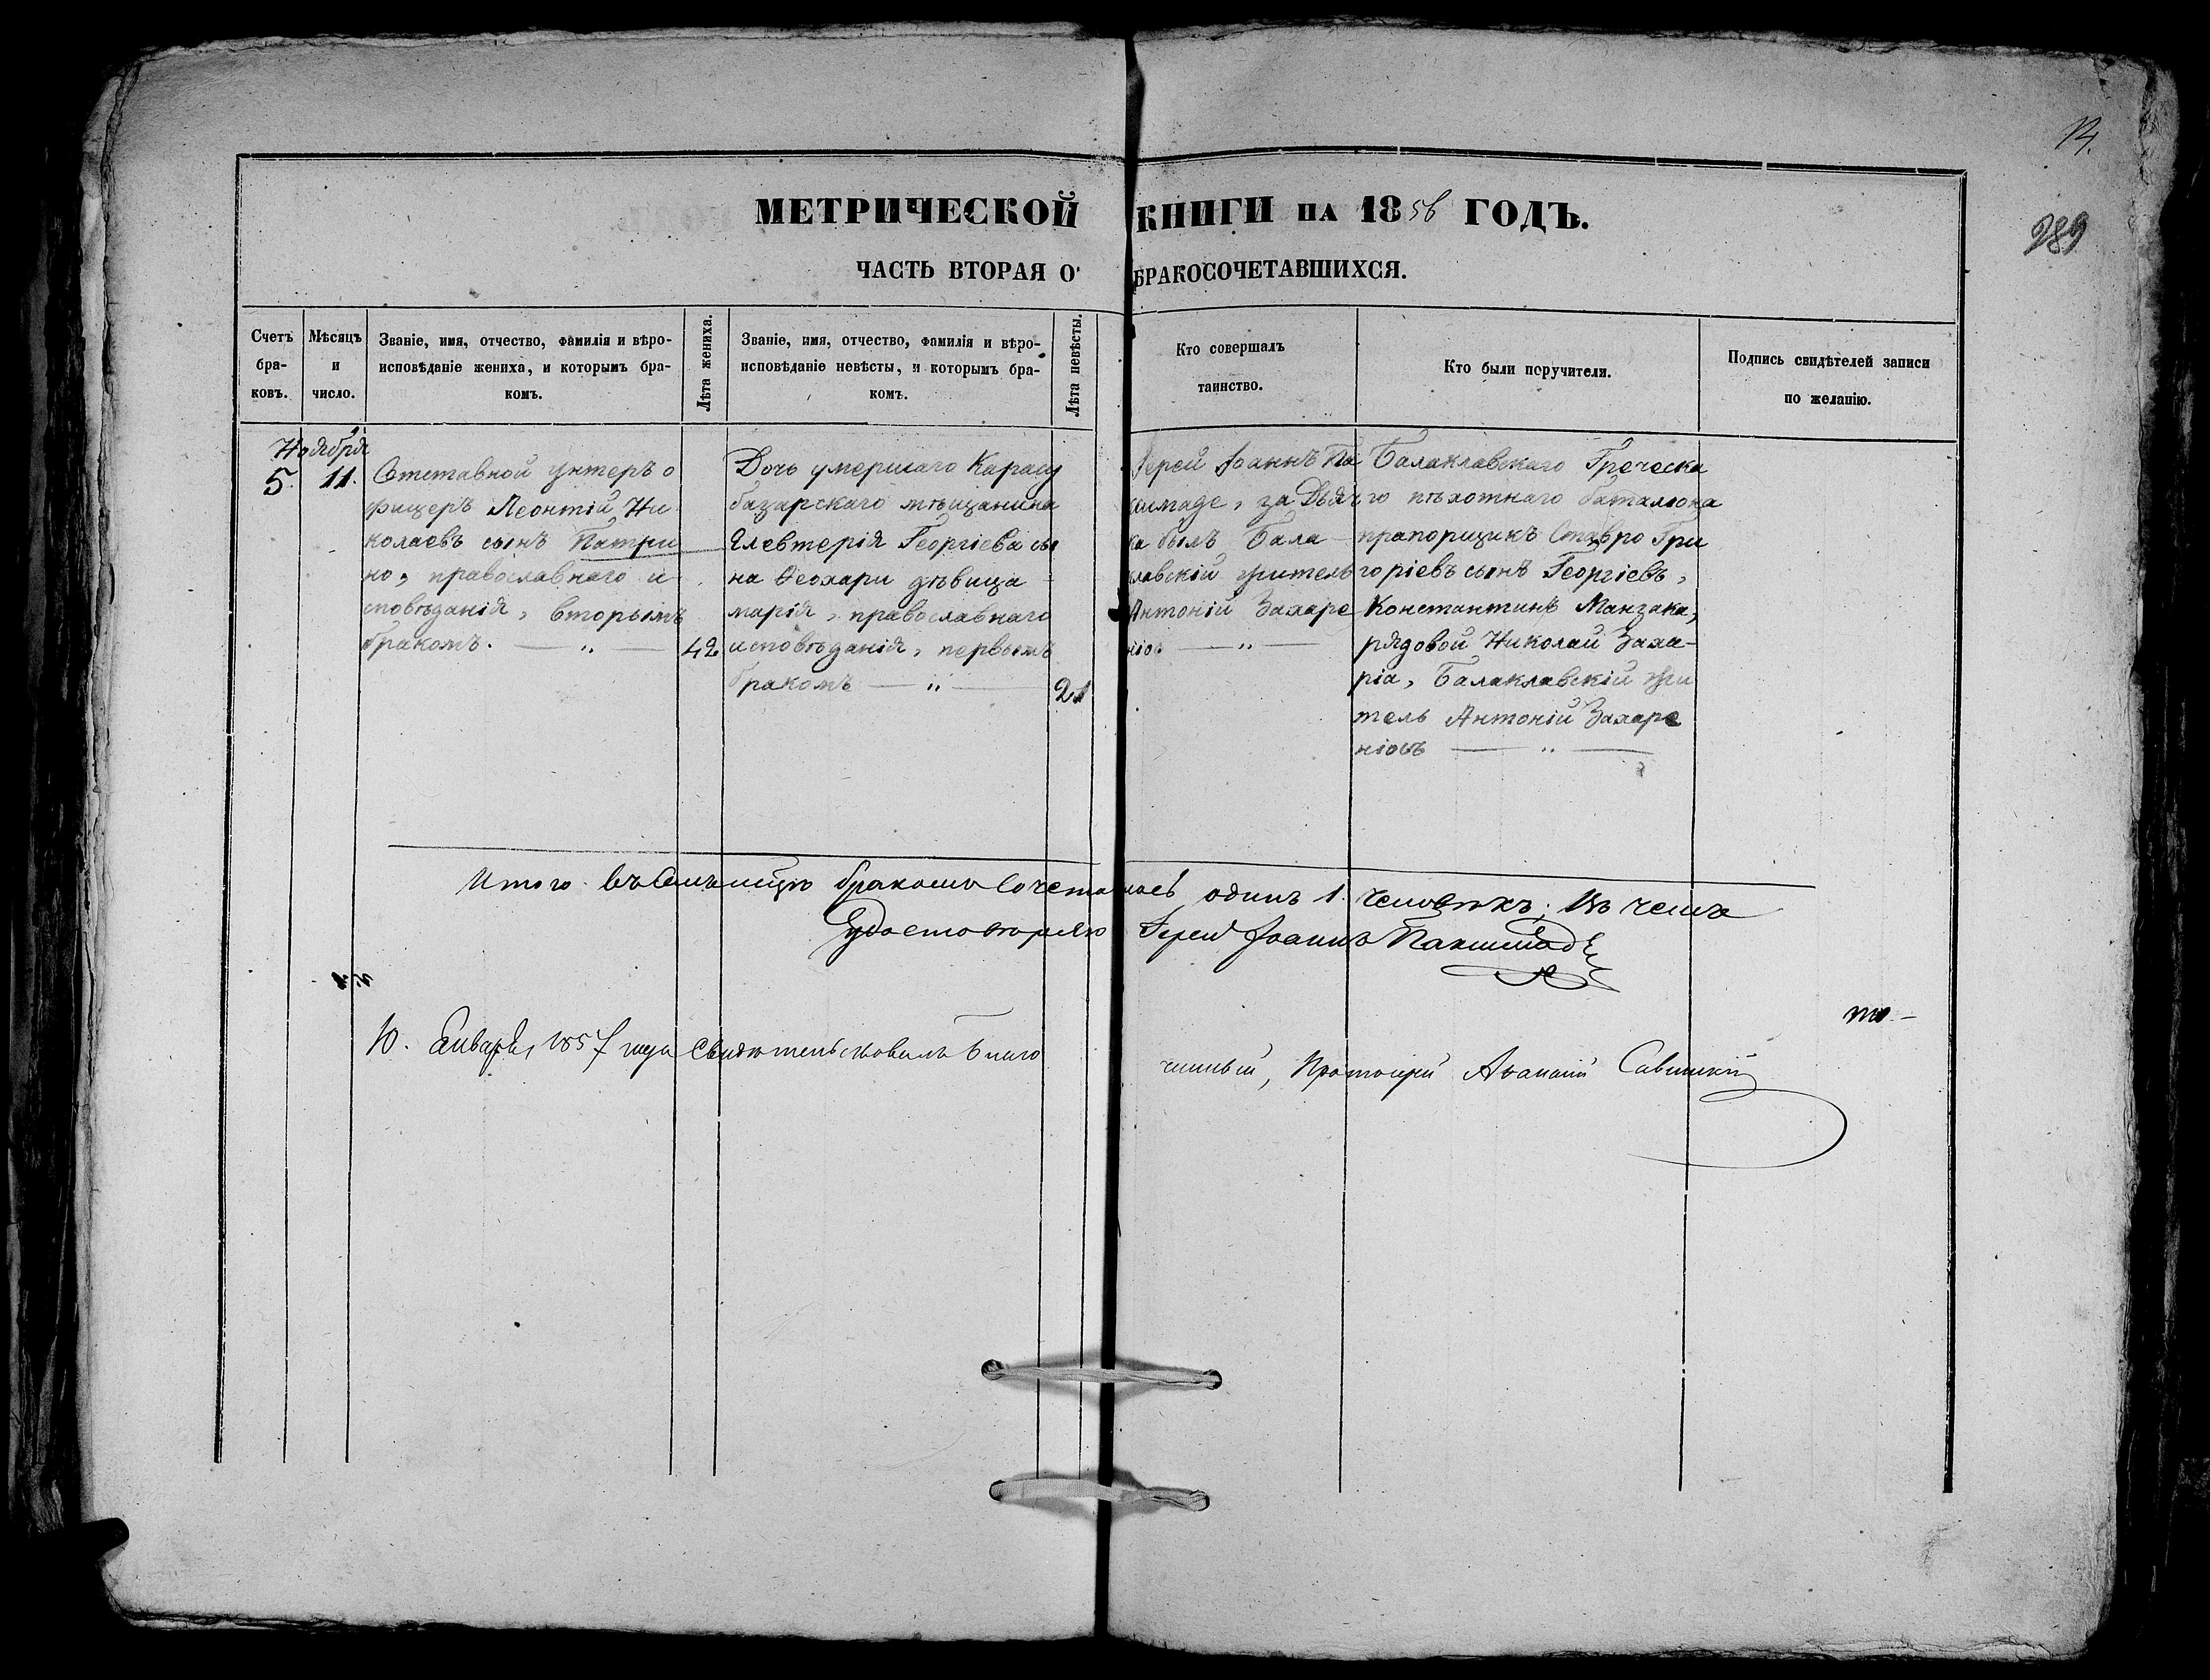 14.
289
МЕТРИЧЕСКОЙ КНИГИ НА 1856 ГОДЪ.
ЧАСТЬ ВТОРАЯ О БРАКОСОЧЕТАВШИХСЯ.
Счетъ
бра-
ковъ.
Мѣсяцъ
и
число.
Званіе, имя, отчество, фамилія и вѣро-
исповѣданіе жениха, и которымъ бра-
комъ.
Лѣта жениха.
Званіе, имя, отчество, фамилія и вѣро-
исповѣданіе невѣсты, и которымъ бра-
комъ.
Лѣта невѣсты.
Кто совершалъ
таинство.
Кто были поручители.
Подпись свидѣтелей записи
по желанію.
Ноября
5. 11.
Отставной унтеръ о
фицеръ Леонтій Ни
колаевъ сынъ Патри
но, православнаго и
сповѣданія, вторымъ
бракомъ. — „ —
42
Дочь умершаго Карасу
базарскаго мѣщанина
Елевтерія Георгіева сы
на Ѳеохари дѣвица
Марія, православнаго
исповѣданія, первымъ
бракомъ — „ —
21
Іерей Іоаннъ Па
кшмаде, за Дьяч
ка былъ Бала
клавскій житель
Антоній Захаре
ніос — „ —
Балаклавскаго Греческа
го пѣхотнаго баталіона
прапорщикъ Ставро Гри
горіевъ сынъ Георгіевъ,
Константинъ Манзака,
рядовой Николай Заха-
ріа, Балаклавскій жи
тель Антоній Захаре
ніосъ — „ —
Итого въ семъ мѣсяцѣ бракомъ сочетался одинъ 1. человѣкъ; Въ чемъ
Удостовѣряю Іерей Іоаннъ Пакшмаде
10. Января 1857 года Свидѣтельствовалъ Благо
чинный, Протоіерей Аѳанасій Савицкій